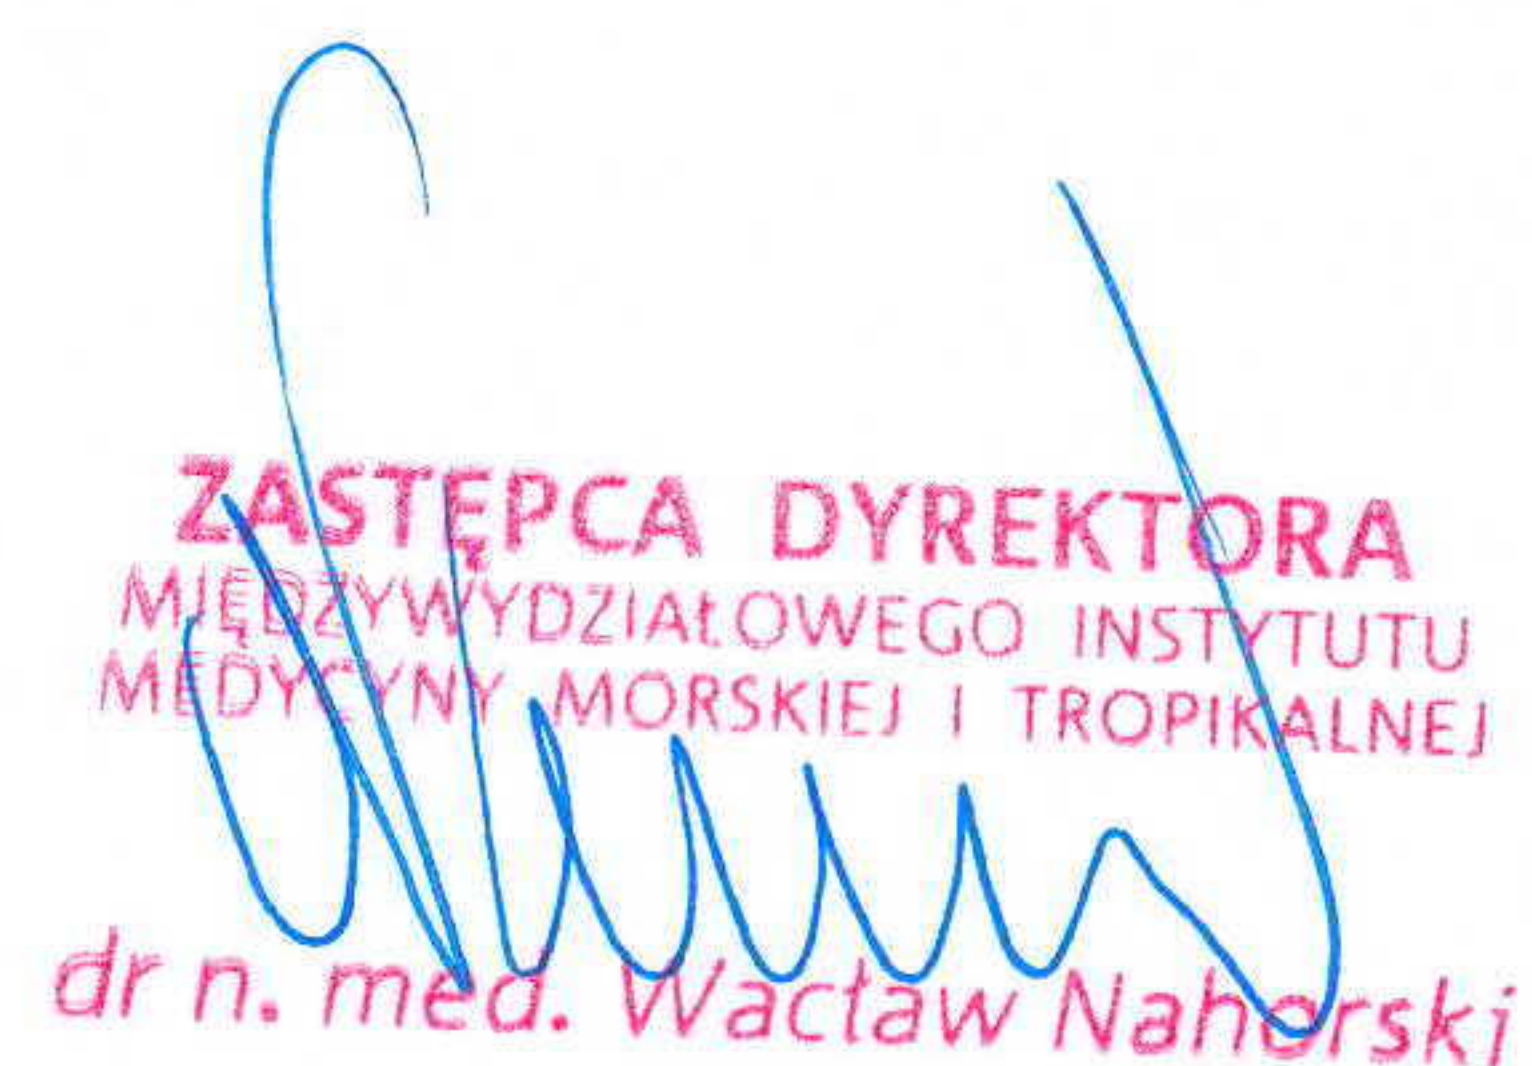 ZASTĘPCA DYREKTORA
MIĘDZYWYDZIAŁOWEGO INSTYTUTU
MEDYCYNY MORSKIEJ I TROPIKALNEJ
dr n. med. Wacław Nahorski